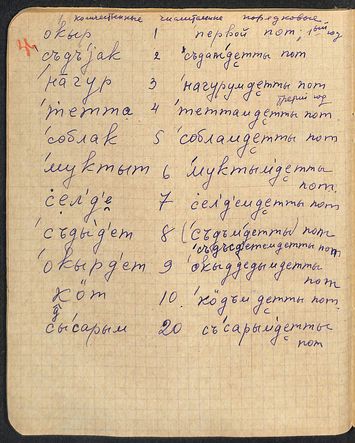 количественные числительные порядковые
о́кыр 1 первой пот, 1ый год
съдъјак 2 ´съдамдетты пот
на́гур 3 ´нагурумдетты пот
третий год
´тетта 4 ´теттамдетты пот.
´соблак 5 ´собламдетты пот
´муктыт 6 ´муктымдетты пот.
сел'д'е 7 сел'демдетты пот
´съды'д'ет 8 (´съдъм'детты) пот
´съдъдетемдетты пот
´окырд'ет 9 ´окыд'едымдетты пот
кӧт 10. ´кӧдъмдетты пот.
сы'сарым 20 съ'сарымдетты пот